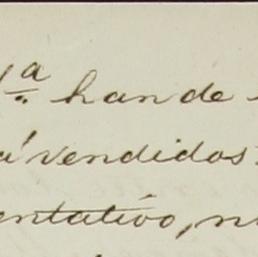 ª han de
á vendidos
entativo, n